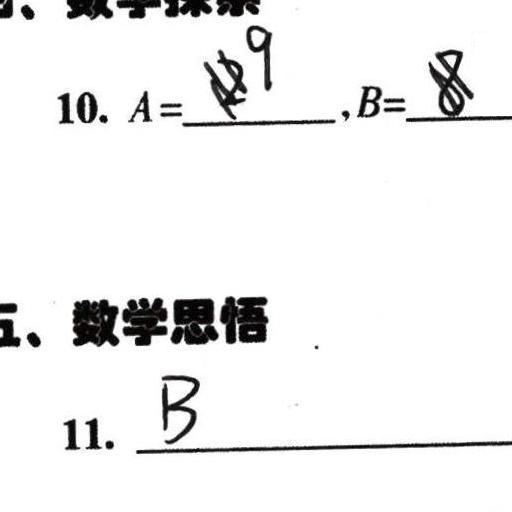 、数学探索
10. A= 9 ,B= 8
五、数学思悟
11. B